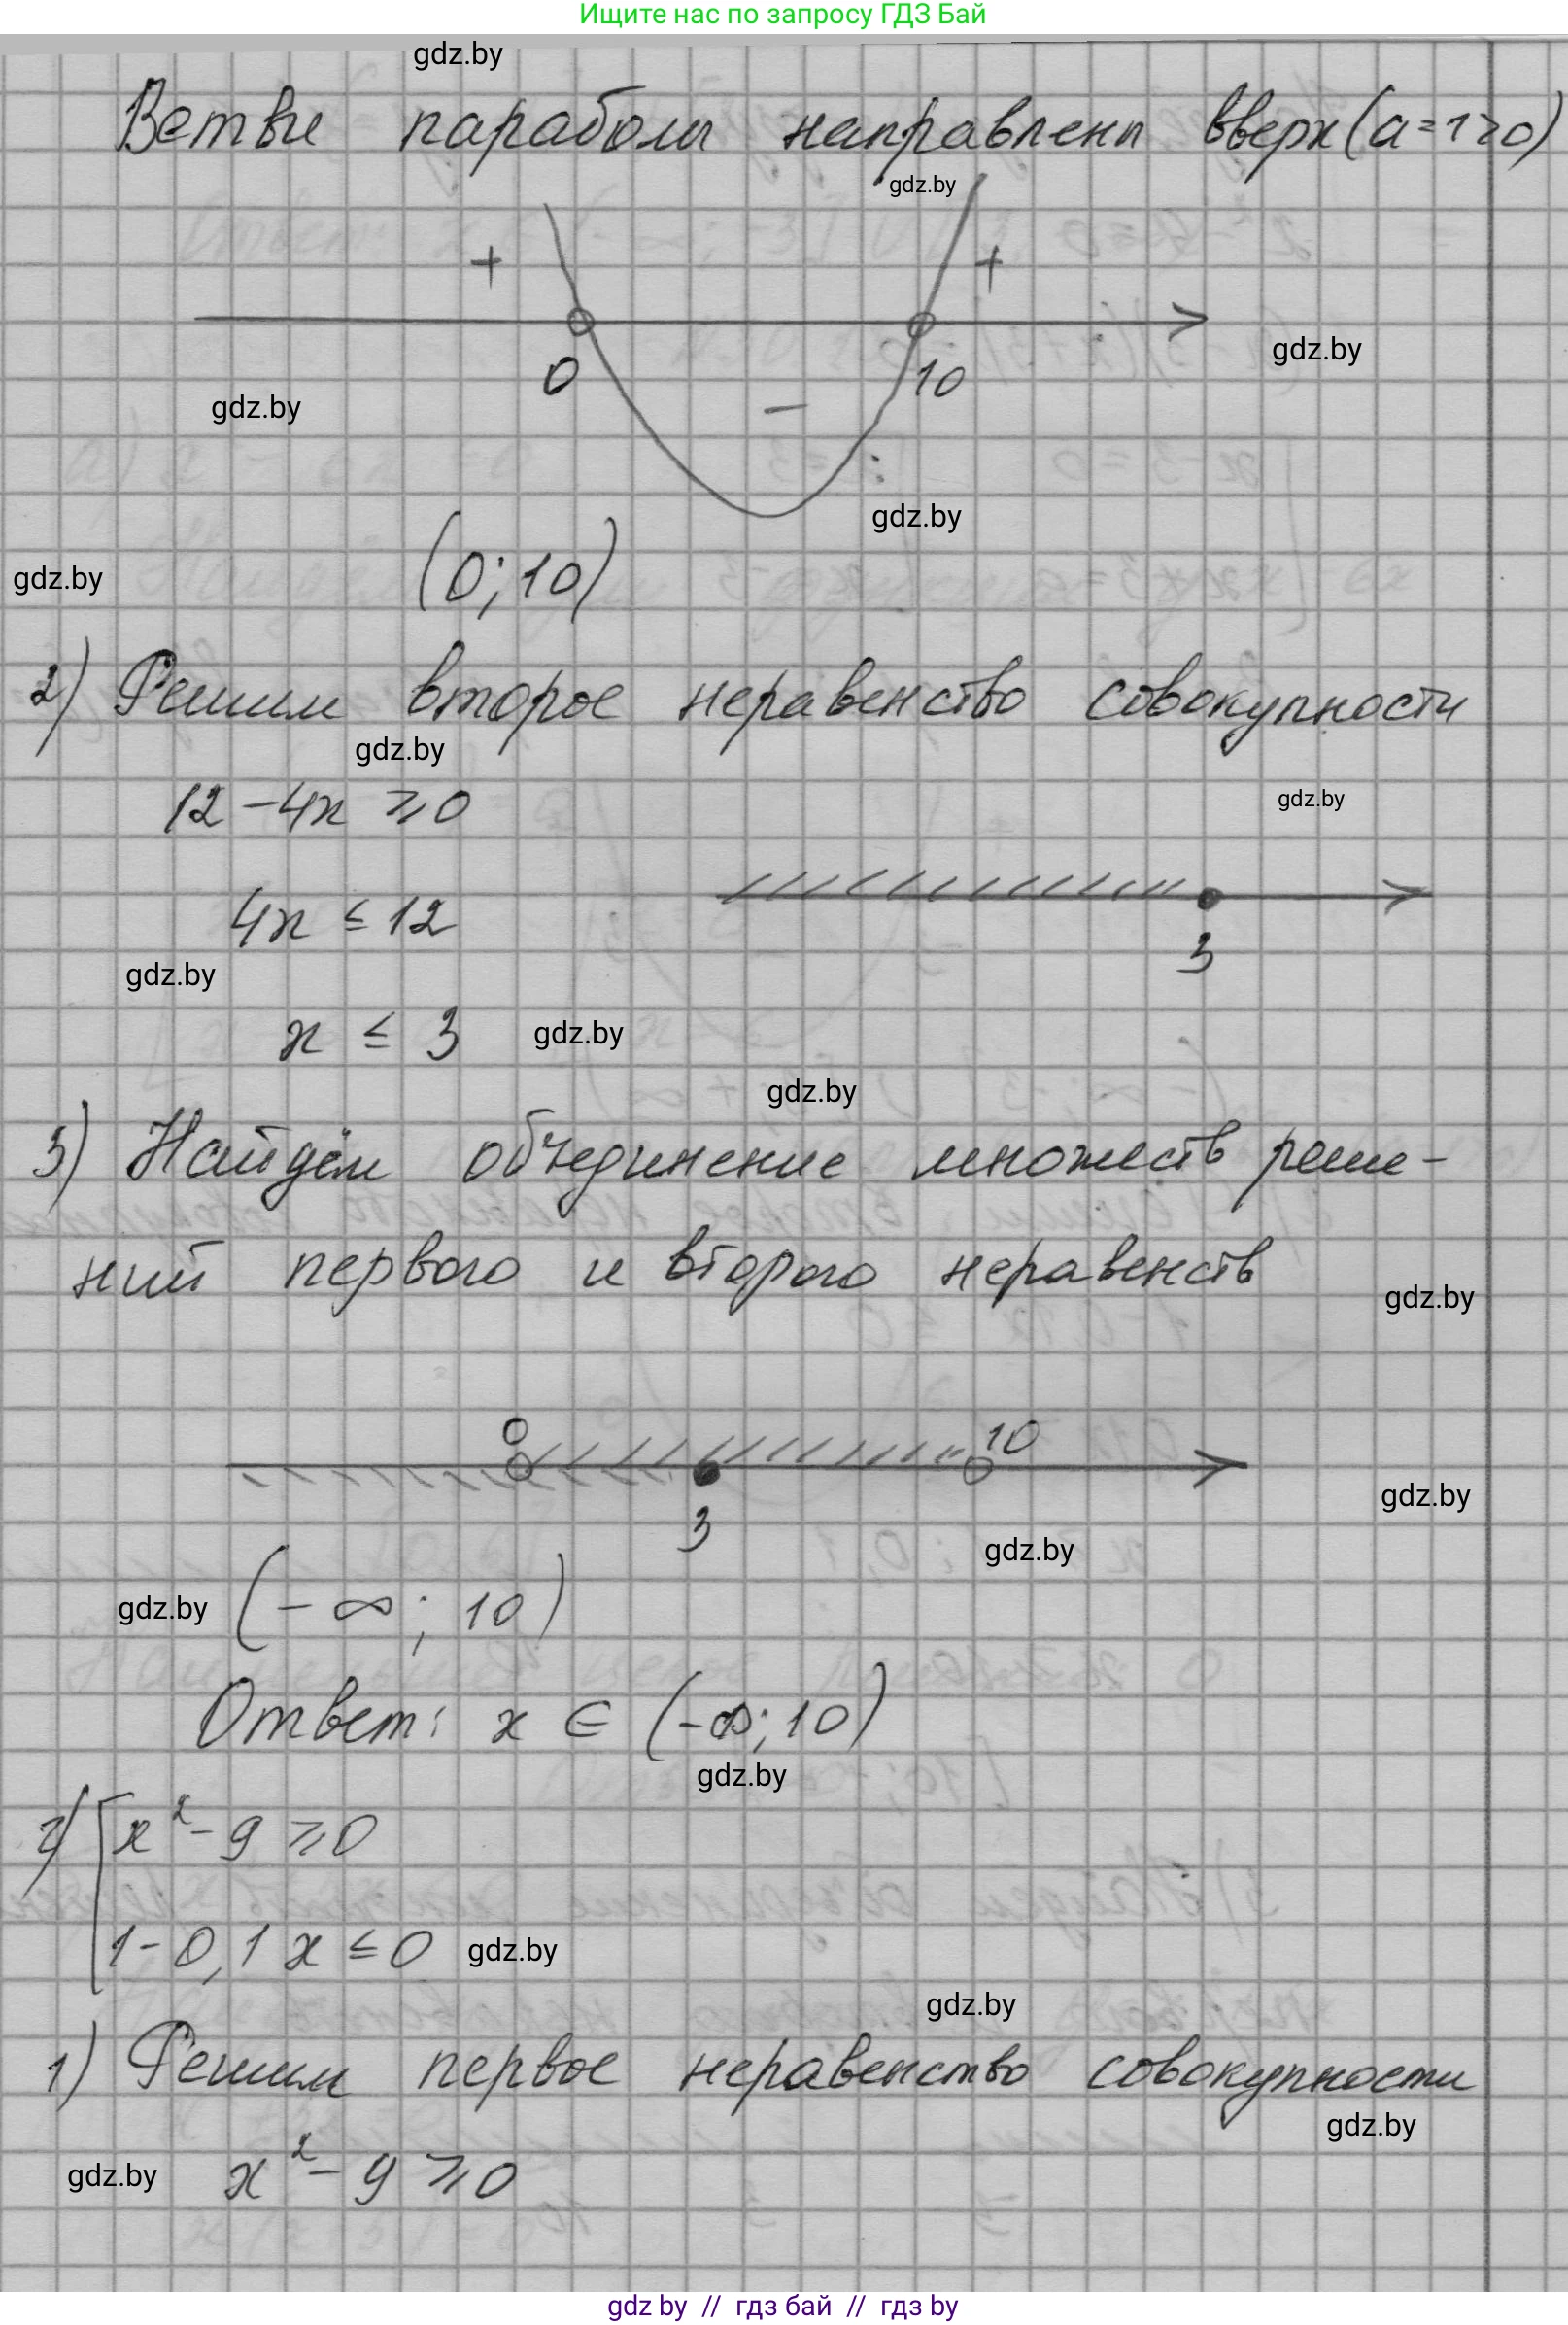 Ищите нас по запросу ГДЗ Бай
gdz.by
Ветви параболы направлены вверх (a=1>0)
gdz.by
+ +
0 10
gdz.by
gdz.by
−
gdz.by
(0; 10)
gdz.by
2) Решим второе неравенство совокупности
gdz.by
12 − 4x ⩾ 0
gdz.by
4x ≤ 12
3
gdz.by
x ≤ 3
gdz.by
gdz.by
3) Найдём объединение множеств реше-
ний первого и второго неравенств
gdz.by
0 10
3
gdz.by
gdz.by
gdz.by
(−∞; 10)
Ответ: x ∈ (−∞; 10)
gdz.by
г) [ x² − 9 ⩾ 0
1 − 0,1x ≤ 0
gdz.by
gdz.by
1) Решим первое неравенство совокупности
gdz.by
gdz.by
x² − 9 ⩾ 0
gdz by // гдз бай // гдз by